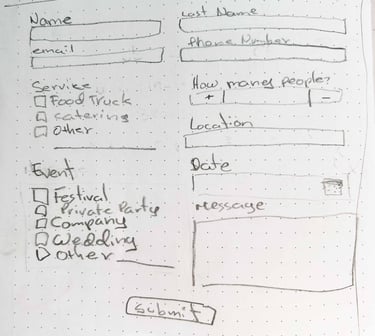 Name
Last Name
email
Phone Number
Service
Food Truck
Catering
Other
How many people?
+ -
Location
Event
Festival
Private Party
Company
Wedding
Other
Date
Message
Submit